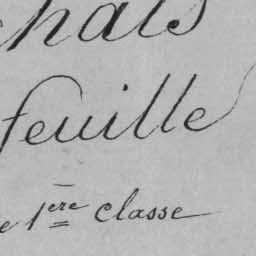 hals
feuille
e 1ère classe